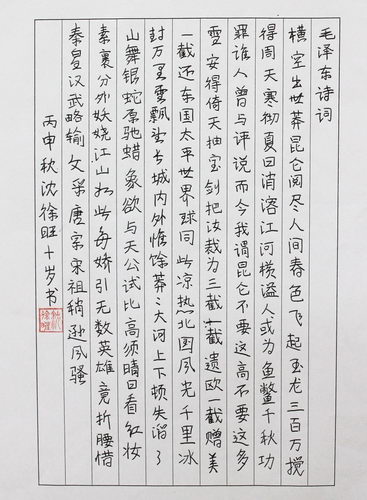 毛泽东诗词
横空出世莽昆仑阅尽人间春色飞起玉龙三百万搅
得周天寒彻夏日消溶江河横溢人或为鱼鳖千秋功
罪谁人曾与评说而今我谓昆仑不要这高不要这多
雪安得倚天抽宝剑把汝裁为三截一截遗欧一截赠美
一截还东国太平世界球同此凉热北国风光千里冰
封万里雪飘望长城内外惟馀莽々大河上下顿失滔々
山舞银蛇原驰蜡象欲与天公试比高须晴日看红妆
素裹分外妖娆江山如此多娇引无数英雄竞折腰惜
秦皇汉武略输文采唐宗宋祖稍逊风骚
丙申秋沈徐旺十岁书